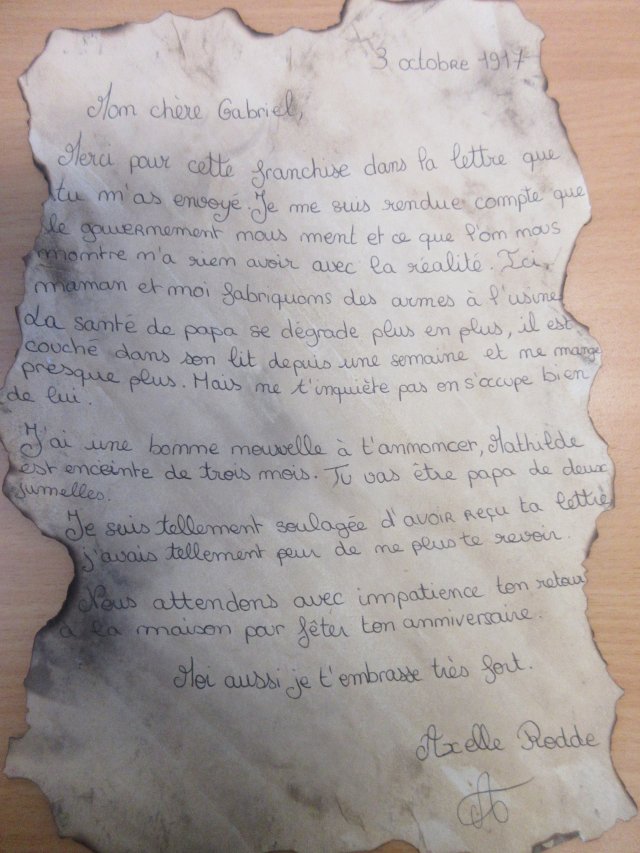 3 octobre 1917
Mon chère Gabriel,
Merci pour cette franchise dans la lettre que
tu m'as envoyé. Je me suis rendue compte que
le gouvernement nous ment et ce que l'on nous
montre n'a rien avoir avec la réalité. Ici,
maman et moi fabriquons des armes à l'usine
La santé de papa se dégrade plus en plus, il est
couché dans son lit depuis une semaine et ne mange
presque plus. Mais ne t'inquiète pas on s'occupe bien
de lui.
J'ai une bonne nouvelle à t'annoncer, Mathilde
est enceinte de trois mois. Tu vas être papa de deux
jumelles.
Je suis tellement soulagée d'avoir reçu ta lettre
j'avais tellement peur de ne plus te revoir.
Nous attendons avec impatience ton retour
à la maison par fêter ton anniversaire.
Moi aussi je t'embrasse très fort.
Axelle Rodde